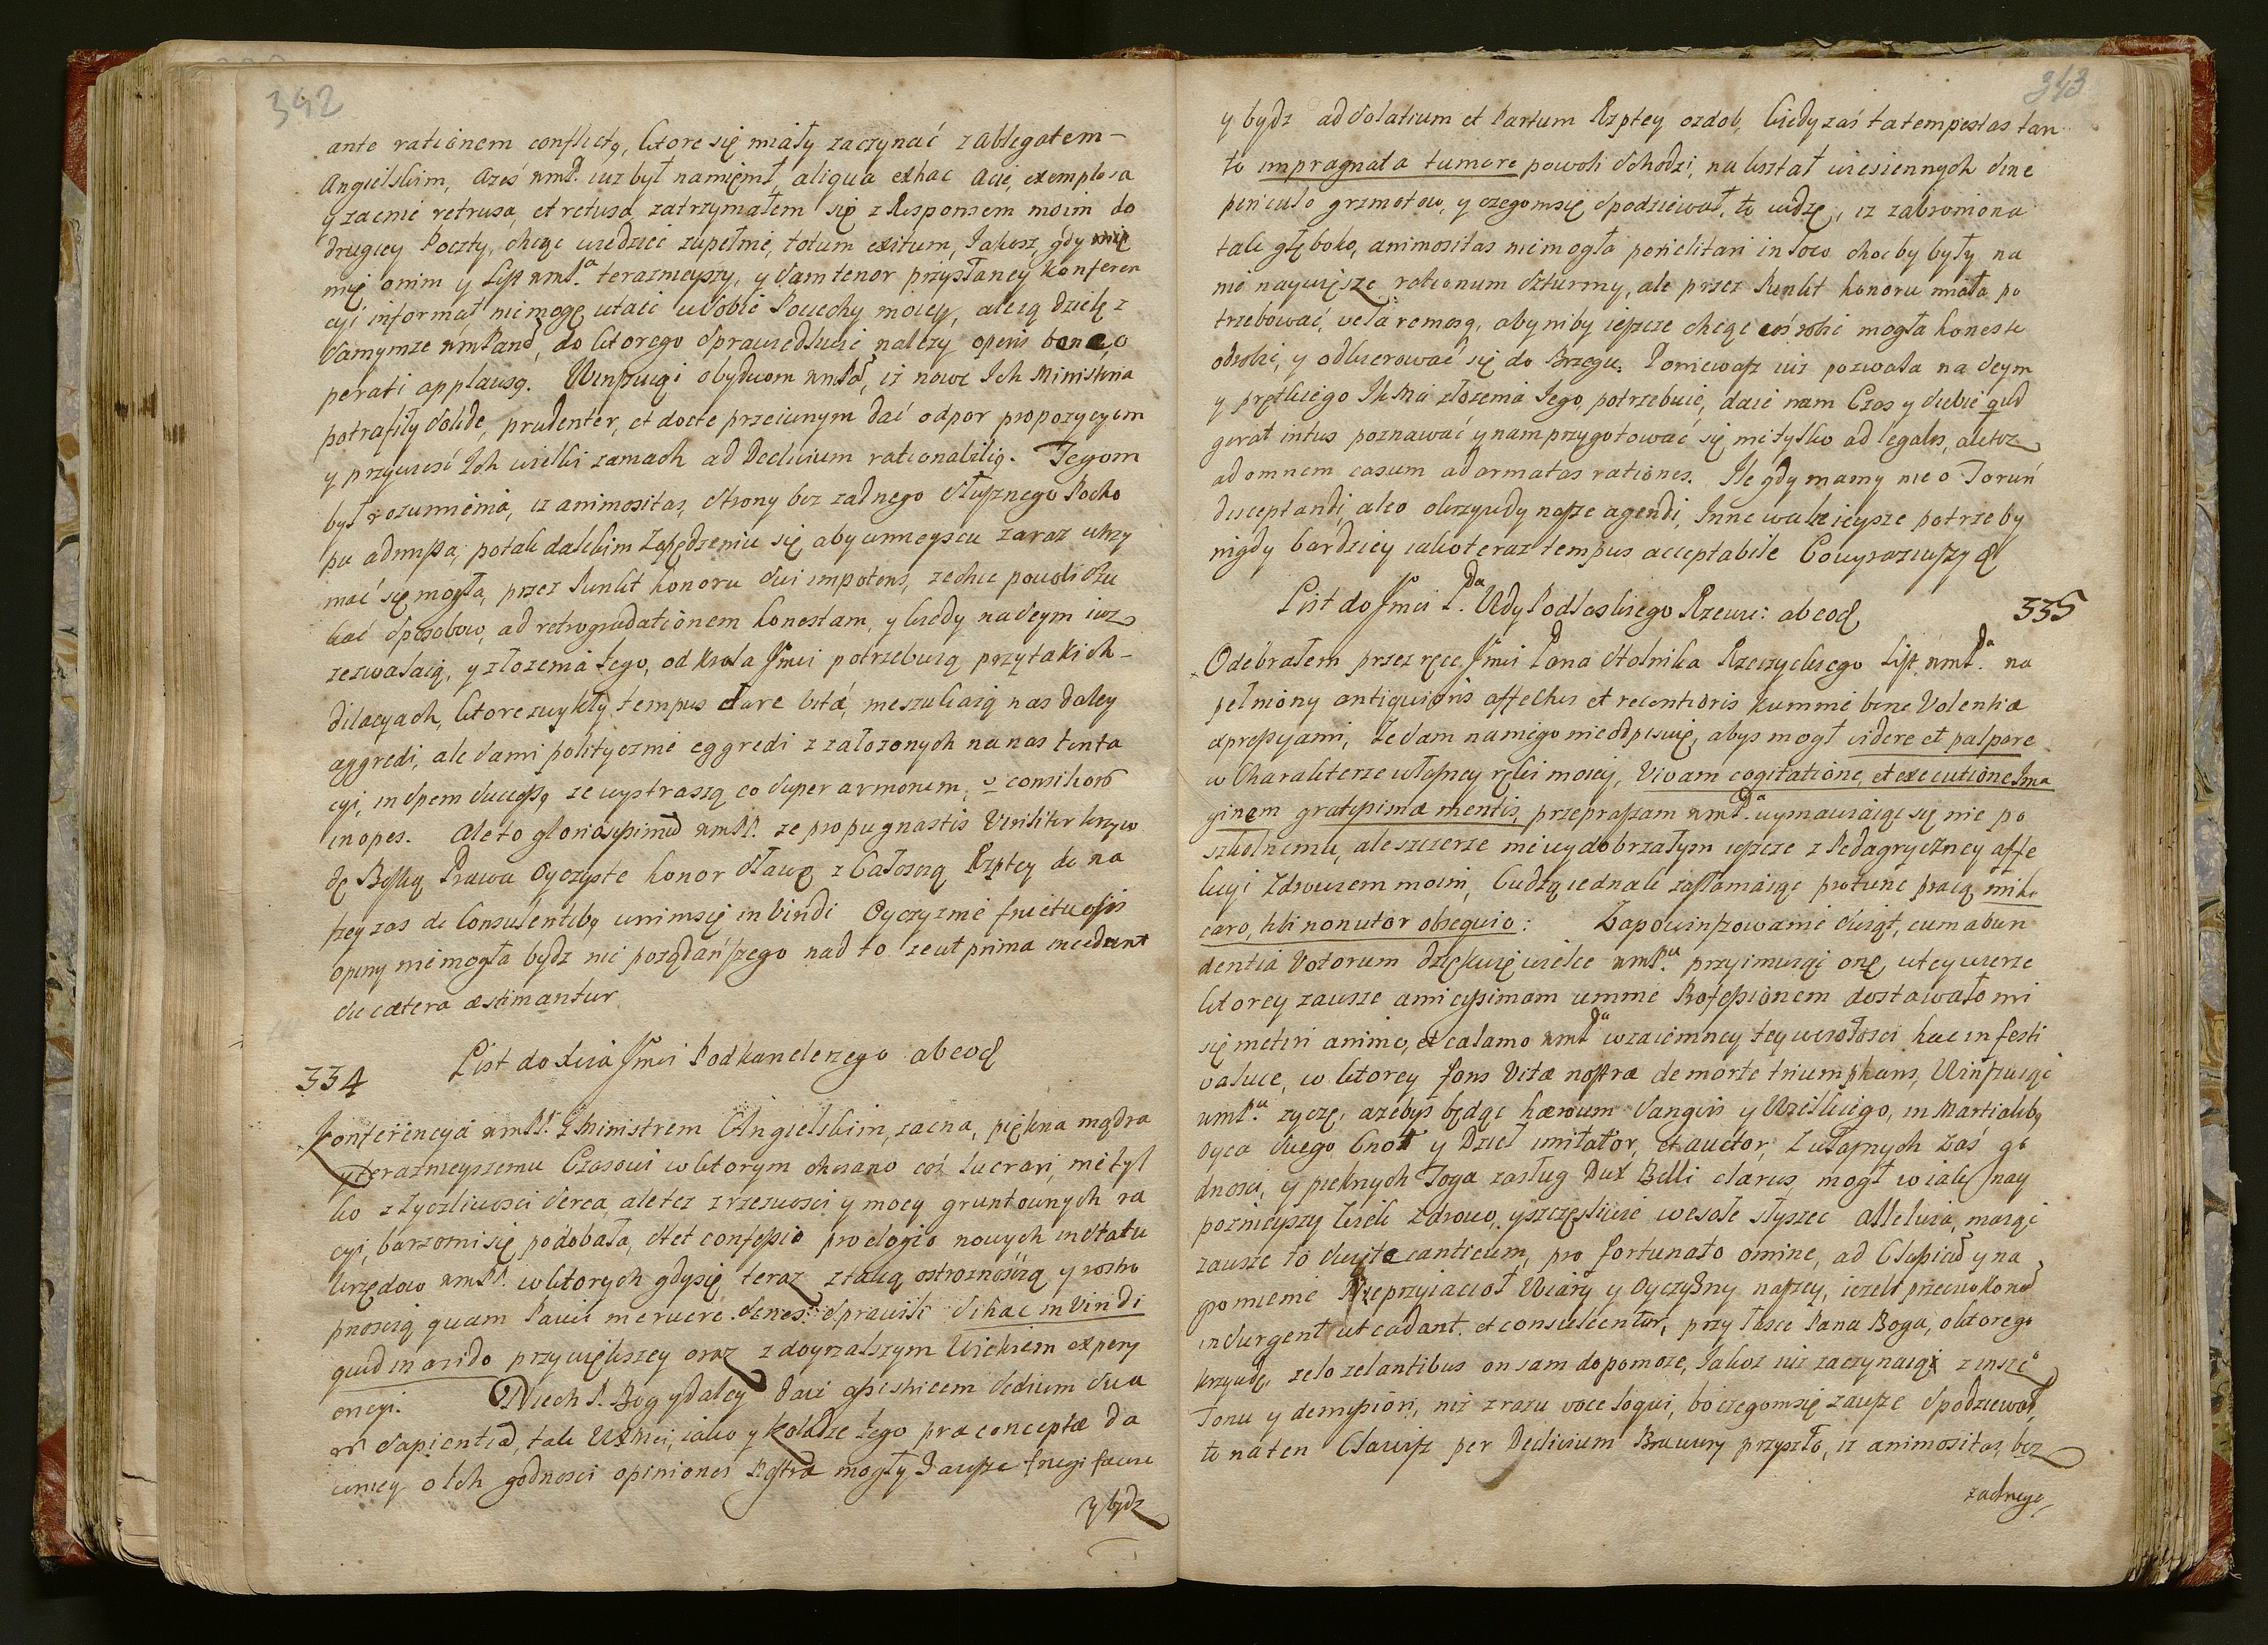 342
ante rationem conflictꝗ, ktore się miały zaczynać z Ablegatem
Angielskim, aześ WmP. iuz był namienił, aliqua ex hac Acie, explosa
y zacnie retrusa, et retusa zatrzymałem się z Responsem moim do
drugiey Poczty, chcąc wiedzieć zupełnie, totum exitum, Jakosz gdy
mię onim y List WmPa. teraznieyszy, y sam tenor przysłaney Konferen
cyi informał nie mogę utaić w sobie Pociechy moiey, ale ią dzielę z
samymze WmPand, do ktorego sprawiedliwie nalezy operis bene o
perati applausꝗ. Winszuiąc obydwom WmPd, iz nowe Ich Ministeria
potrafiły solide, prudenter, et docte przeciwnym dać odpor propozycyom
y przywieść Ich wielki zamach ad Declivium rationabiliꝗ. Tegom
był rozumienia, iz animositas, strony bez zadnego słusznego Pocho
pu admissa, po tak dalekim Zapędzeniu się aby w mieyscu zaraz utrzy
mać się mogła, przez Punkt honoru sui impotens, zechce powoli szu
kać sposobow, ad retrogradationem honestam, y kiedy na Seym iuz
zezwalaią, y złozenia tego, od Krola Jmci potrzebuią, przy takich
dilacyach, ktore zwykły tempus dare vitæ, nieszukaią nas daley
aggredi, ale sami politycznie eggredi z załozonych na nas tenta
cyi, in spem successꝗ ze wystraszą co super armorum, consiliorum
inopes. Ale to gloriosissimum WmPP. ze propugnastis Viriliter krzyw
dę Boską Prawa Oyczyste honor sławę z Całoscią Rzptey do na
szey zas de Consulentibꝗ uniuersię in vindi Oyczyznie fructuosis
opiny nie mogła bydz nic poządańszego nad to ze ut prima incedunt
sic cætera æstimantur

334 List do Xcia Jmci Podkanclerzego ab eodem
Konferencya WmPP. z Ministrem Angielskim, zacna, piękna mądra
y teraznieyszemu Czasowi w ktorym chciano coś lucrari, nie tyl
ko z życzliwosci serca, ale tez z rzezwosci y mocy gruntownych ra
cyi, barzo mi się podobała, stet confessio pro elogio nowych in statu
Urzędow WmPP. w ktorych gdy się teraz z taką ostroznością y rostro
pnoscią quam Pauci meruere senes sprawili si hac in viridi
quid in arido przy większey oraz z doyrzalszym Wiekiem expery
encyi. Niech P. Bog y daley daie assistricem sedium sua
rum Sapientiam, tak WXMci, iako y Koledze Jego præ conceptæ da
wniey o Ich godnosci opiniones Nostræ mogły Zawsze frugi facere
y bydz

343
y bydz ad solatium et Partum Rzptey ozdob, kiedy zaś ta tempestas tan
to impragnata tumore powoli schodzi, na kształt wiesiennych sine
periculo grzmotow, y czegom się spodziewał, to widzę, iz zabroniona
tak głęboko, animositas nie mogła periclitari in loco choc by były na
nię naywiększe rationum szturmy, ale przez Punkt honoru miała po
trzebować, vela remosꝗ, aby niby ieszcze chcąc coś robić mogła honeste
odrobić, y odkierować się do Brzegu. Poniewasz iuz pozwala na Seym
y prętkiego JKMci złozenia Jego, potrzebuie, daie nam Czas y siebie quid
gerat intus poznawać y nam przygotować się nie tylko ad legales, ale tez
ad omnem casum ad armatas rationes. Ile gdy mamy nie o Toruń
disceptandi, ale o okrzywdy nasze agendi, Inne walnieysze potrzeby
nigdy bardziey iako teraz tempus acceptabile Co wyraziwszy &
List do Jmci Pda Wdy Podlaskiego Rzewu: ab eodem 335
Odebrałem przez ręce Jmci Pana Stolnika Rzeczyckiego List WmPda. na
pełniony antiquioris affectus et recentioris kummie bene Volentiæ
expressyami, ze sam na niego nie odpisuię, abys mogł videre et palpare
w Charakterze własney ręki moiey, Vivam cogitatione, et executione Ima
ginem gratissimæ mentis, przepraszam WmPda. wymawiaiąc się nie po
szkolnemu, ale szczerze nie wydobrzałym ieszcze z Pedagryczney affe
kcyi Zdrowiem moim, Cudzą iednak zasłaniaiąc pro tunc pracą mihi
caro, tibi non utor obsequio: Za powinszowanie swiąt, cum abun
dentia Votorum dziękuię wielce WmPu. przyimuiąc onę, w tey wierze
ktorey zawsze amicissimam ummie Professionem dostawało mi
się metiri animo, et calamo WmPda wzaiemney tey wesołosci hac in festi
vatuce, w ktorey fons Vitæ nostræ de morte triumphans, Winszuiąc
WmPu. zyczę, azebys będąc hæroum Sanguis y Wielkiego, in Martialibꝗ
Oyca swego Cnot y Dzieł imitator, et auctor, z własnych zaś go
dnosci, y pieknych Toga zasług Dux Belli clarus mogł w iak nay
poznieyszy Wiek Zdrowo, y szczęśliwie wesołe słyszeć Alleluia, maiąc
zawsze to swięte canticum, pro fortunato omine, ad Classicum y na
gromienie Nieprzyiacioł Wiary y Oyczyzny naszey, iezeli przeciwko nam
insurgent ut cadant. et consulentur, przy łasce Pana Boga, o ktorego
krzywdę zelo zelantibus on sam dopomoze, Jakoz iuz zaczynaiąc z insze°
Tonu y demissiori, niz zrazu voce loqui, bo czegom się zawsze spodziewał,
to na ten Clawisz per Declivium Brawury przyszło, iz animositas bez
zadnego